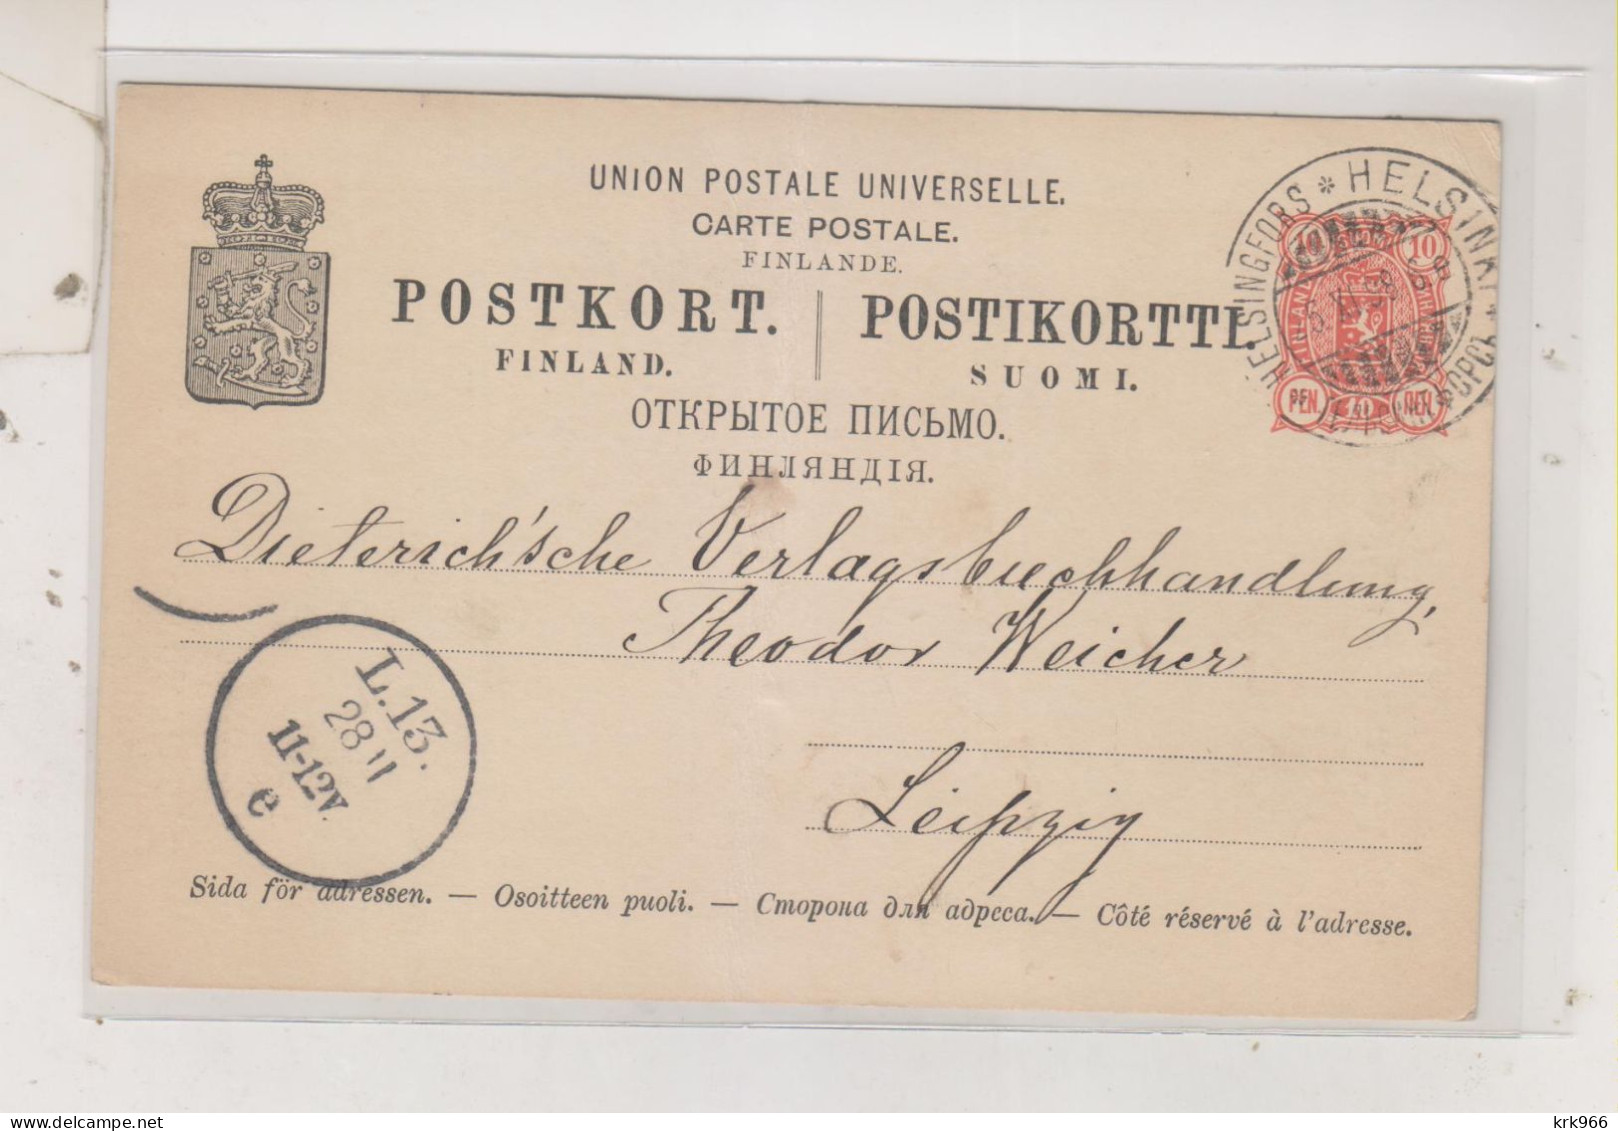 UNION POSTALE UNIVERSELLE.
CARTE POSTALE.
FINLANDE.
POSTKORT. POSTIKORTTI.
FINLAND. SUOMI.
ОТКРЫТОЕ ПИСЬМО.
ФИНЛЯНДІЯ.
HELSINGFORS * HELSINKI *
10 10
PEN. 10 ПЕН.
Dieterich'sche Verlagsbuchhandlung,
Theodor Weicher
Leipzig
L.13.
28 11
11-12V.
e
Sida för adressen. — Osoitteen puoli. — Сторона для адреса. — Côté réservé à l'adresse.
krk966